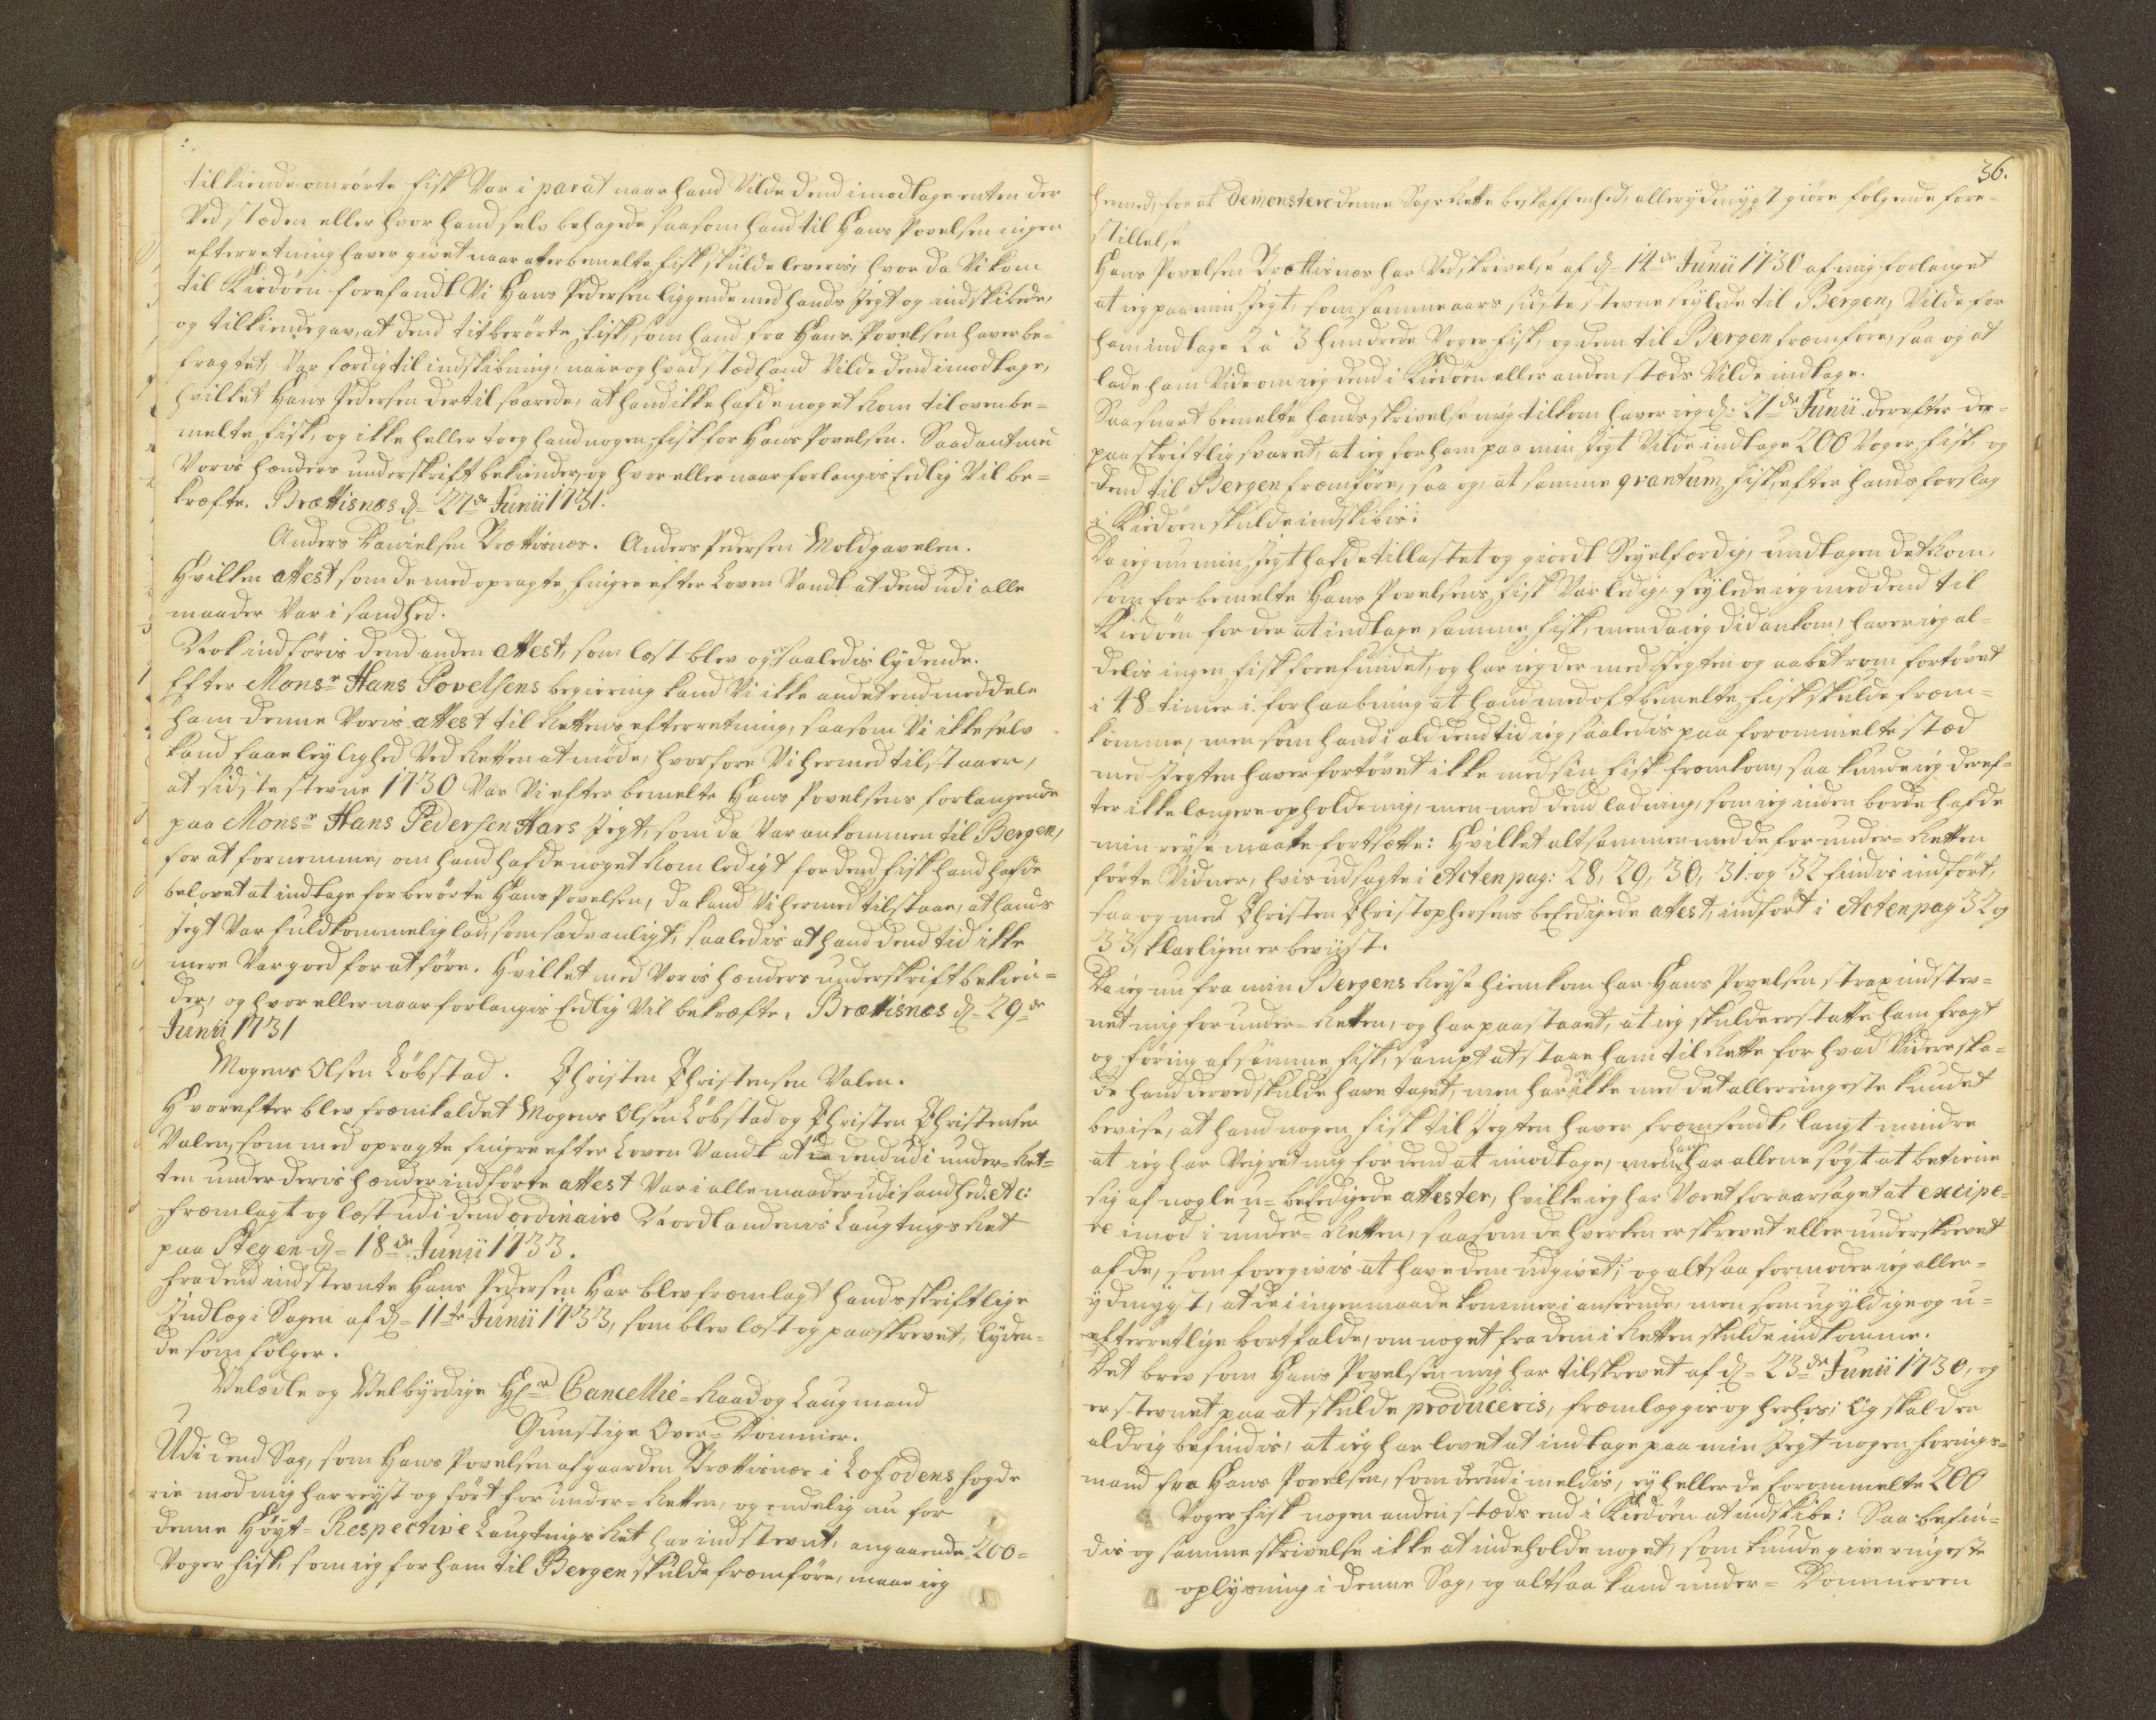 tilkiende omrørte fisk var i parat naar hand vilde dend imodtage enten der
ved stæden eller hvor hand selv behagede saasom hand til Hans Povelsen ingen
efterretning haver givet naar atter bemelte fisk skulde leveris, hvor da Vi kom
til Kiedøen forefandt Vi Hans Pedersen liggende med hands Jegt og indskibede,
og tilkiendegav, at dend titberørte fisk, som hand fra Hans Povelsen haver be-
fragtet, var færdig til indskibning, naar og hvad stæd hand vilde dend imodtage,
hvilket Hans Pedersen dertil svarede, at hand ikke hafde noget Rom til ovenbe-
melte fisk, og ikke heller toeg hand nogen fisk for Hans Povelsen. Saadant med
Voris hænders underskrift bekiender, og hvor eller naar forlangis Eedlig Vil be-
kræfte. Brættisnæs d= 27de Junii 1731.
Anders Danielsen Brættisnæs. Anders Pedersen Moldgavelen.
Hvilken attest som de med opragte fingre efter Loven Vandt at dend udi alle
maader Var i sandhed.
Nok indføris dend anden attest, som læst blev og er saaledis lydende.
Efter Monsr Hans Povelsens begiering kand Vi ikke andet end meddele
ham denne Voris attest til Rettens efterretning, saasom Vi ikke selv
kand faae leylighed ved Retten at møde, hvorfore Vi hermed tilstaaer,
at sidste stevne 1730 Var Vi efter bemelte Hans Povelsens forlangende
paa Monsr Hans Pedersen Hars Jegt, som da Var ankommen til Bergen,
for at fornemme, om hand hafde noget Rom ledigt for dend fisk hand hafde
belovet at indtage for berørte Hans Povelsen, da kand Vi hermed tilstaae, at hands
Jegt Var fuldkommelig lad, som sædvanligt, saaledis at hand dend tid ikke
mere Var goed for at føre. Hvilket med Voris hænders underskrift bekien-
der, og hvor eller naar forlangis Eedlig Vil bekræfte. Brættisnæs d= 29de
Junii 1731
Mogens Olsen Løbstad. Christen Christensen Valen.
Hvorefter blev fremkaldet Mogens Olsen Løbstad og Christen Christensen
Valen, som med opragte fingre efter Loven Vandt at dend udi under-Ret-
ten under deris hænder indførte attest Var i alle maader udi sandhed. etc:
fremlagt og læst udi dend ordinaire Nordlandenis Laugtings Ret
paa Stegen d= 18de Junii 1733.
fra dend indstevnte Hans Pedersen Har blev fremlagt hands skriftlige
Indlæg i Sagen af d= 11te Junii 1733, som blev læst og paaskrevet, lyden-
de som følger.
Velædle og Velbyrdige Hr Cancellie-Raad og Laugmand
Gunstige Over-Dommer.
Udi dend Sag, som Hans Povelsen af gaarden Brættisnæs i Lofodens fogde
rie mod mig har reyst og ført for under-Retten, og endelig nu for
denne Høyt-Respective Laugtings Ret har indstevnt, angaaende 200-
Voger fisk, som ieg for ham til Bergen skulde fremføre, maae ieg
36.
hermed, for at demonstere denne Sags Rette beskaffenhed, allerydmygst giøre følgende fore-
stillelse
Hans Povelsen Brættisnæs har Ved skrivelse af d= 14de Junii 1730 af mig forlanget
at ieg paa min Jegt, som samme aars sidste stevne seylede til Bergen, Vilde for
ham indtage 2 à 3 hundrede Voger fisk, og dem til Bergen fremføre, saa og at
lade ham Vide om ieg dend i Kiedøen eller anden stæds Vilde indtage.
Saasnart bemelte hands skrivelse mig tilkom haver ieg d: 21de Junii derefter der-
paa skriftlig svaret, at ieg for ham paa min Jegt Vilde indtage 200 Voger fisk, og
dend til Bergen fremføre, saa og, at samme qvantum fisk, efter hands forslag
i Kiedøen skulde indskibis.
Da ieg nu min Jegt hafde tillastet og giordt Seyelfærdig, undtagen det Rom,
som for bemelte Hans Povelsens fisk Var ledig, seylede ieg med dend til
Kiedøen for der at indtage samme fisk, men da ieg did ankom, haver ieg al-
delis ingen fisk forefundet, og har ieg der med Jegten og aabet rom fortøvet
i 48-timer i forhaabning at hand med oftbemelte fisk skulde frem-
komme, men som hand i ald dend tid ieg saaledis paa forommelte stæd
med Jegten haver fortøvet ikke med sin fisk fremkom, saa kunde ieg deref-
ter ikke længere opholde mig, men med dend ladning, som ieg inden borde hafde
min reyse maatte fortsætte: Hvilket altsammen med de for under-Retten
førte Vidner, hvis udsagte i Acten pag: 28, 29, 30, 31. og 32 findis indført,
saa og med Christen Christophersens beEedigede attest, indført i Acten pag 32 og
33, klarligen er bevist.
Da ieg nu fra min Bergens Reyse hiemkom har Hans Povelsen strax indstev-
net mig for under-Retten, og har paastaaet, at ieg skulde erstatte ham fragt
og føring af samme fisk, sampt at staae ham til Rette for hvad Videre ska-
de hand derved skulde have taget, men har dog ikke med det allerringeste kundet
bevise, at hand nogen fisk til Jegten haver fremsendt, langt mindre
at ieg har Veigret mig for dend at imodtage, men hand har allene søgt at betiene
sig af nogle u-beEedigede attester, hvilke ieg har Været foraarsaget at excipe-
re imod i under-Retten, saasom de hverken er skrevet eller underskrevet
af de, som foregivis at have dem udgivet; og altsaa formoder ieg aller-
ydmygst, at de i ingen maade kommer i anseende, men som ugyldige og u-
efterretlige bortfalde, om noget fra dem i Retten skulde indkomme.
Det brev som Hans Povelsen mig har tilskrevet af d= 23de Junii 1730, og
er stevnet paa at skulde produceris, fremlæggis og herhos; Og skal der
aldrig befindis, at ieg har lovet at indtage paa min Jegt nogen førings-
mand fra Hans Povelsen, som derudi meldis, ey heller de forommelte 200
Voger fisk nogen anden stæds end i Kiedøen at indskibe: Saa befin-
dis og samme skrivelse ikke at indeholde noget, som kunde give ringeste
oplysning i denne Sag, og altsaa kand under-Dommeren